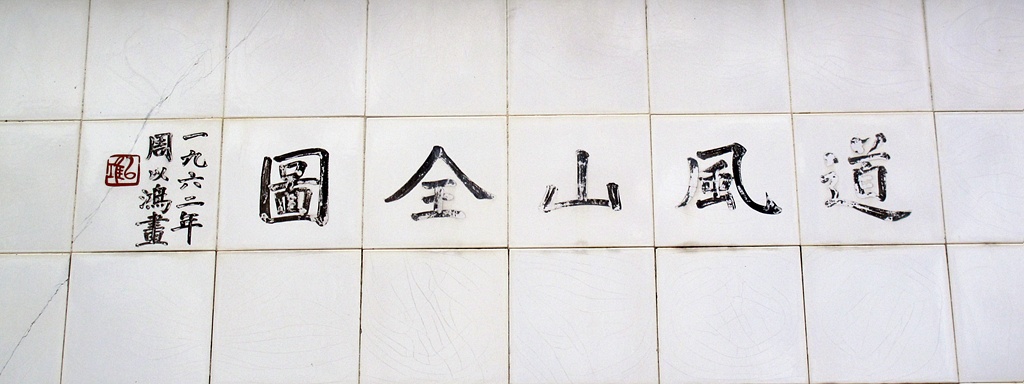 道風山全圖
一九六二年
周以鴻畫